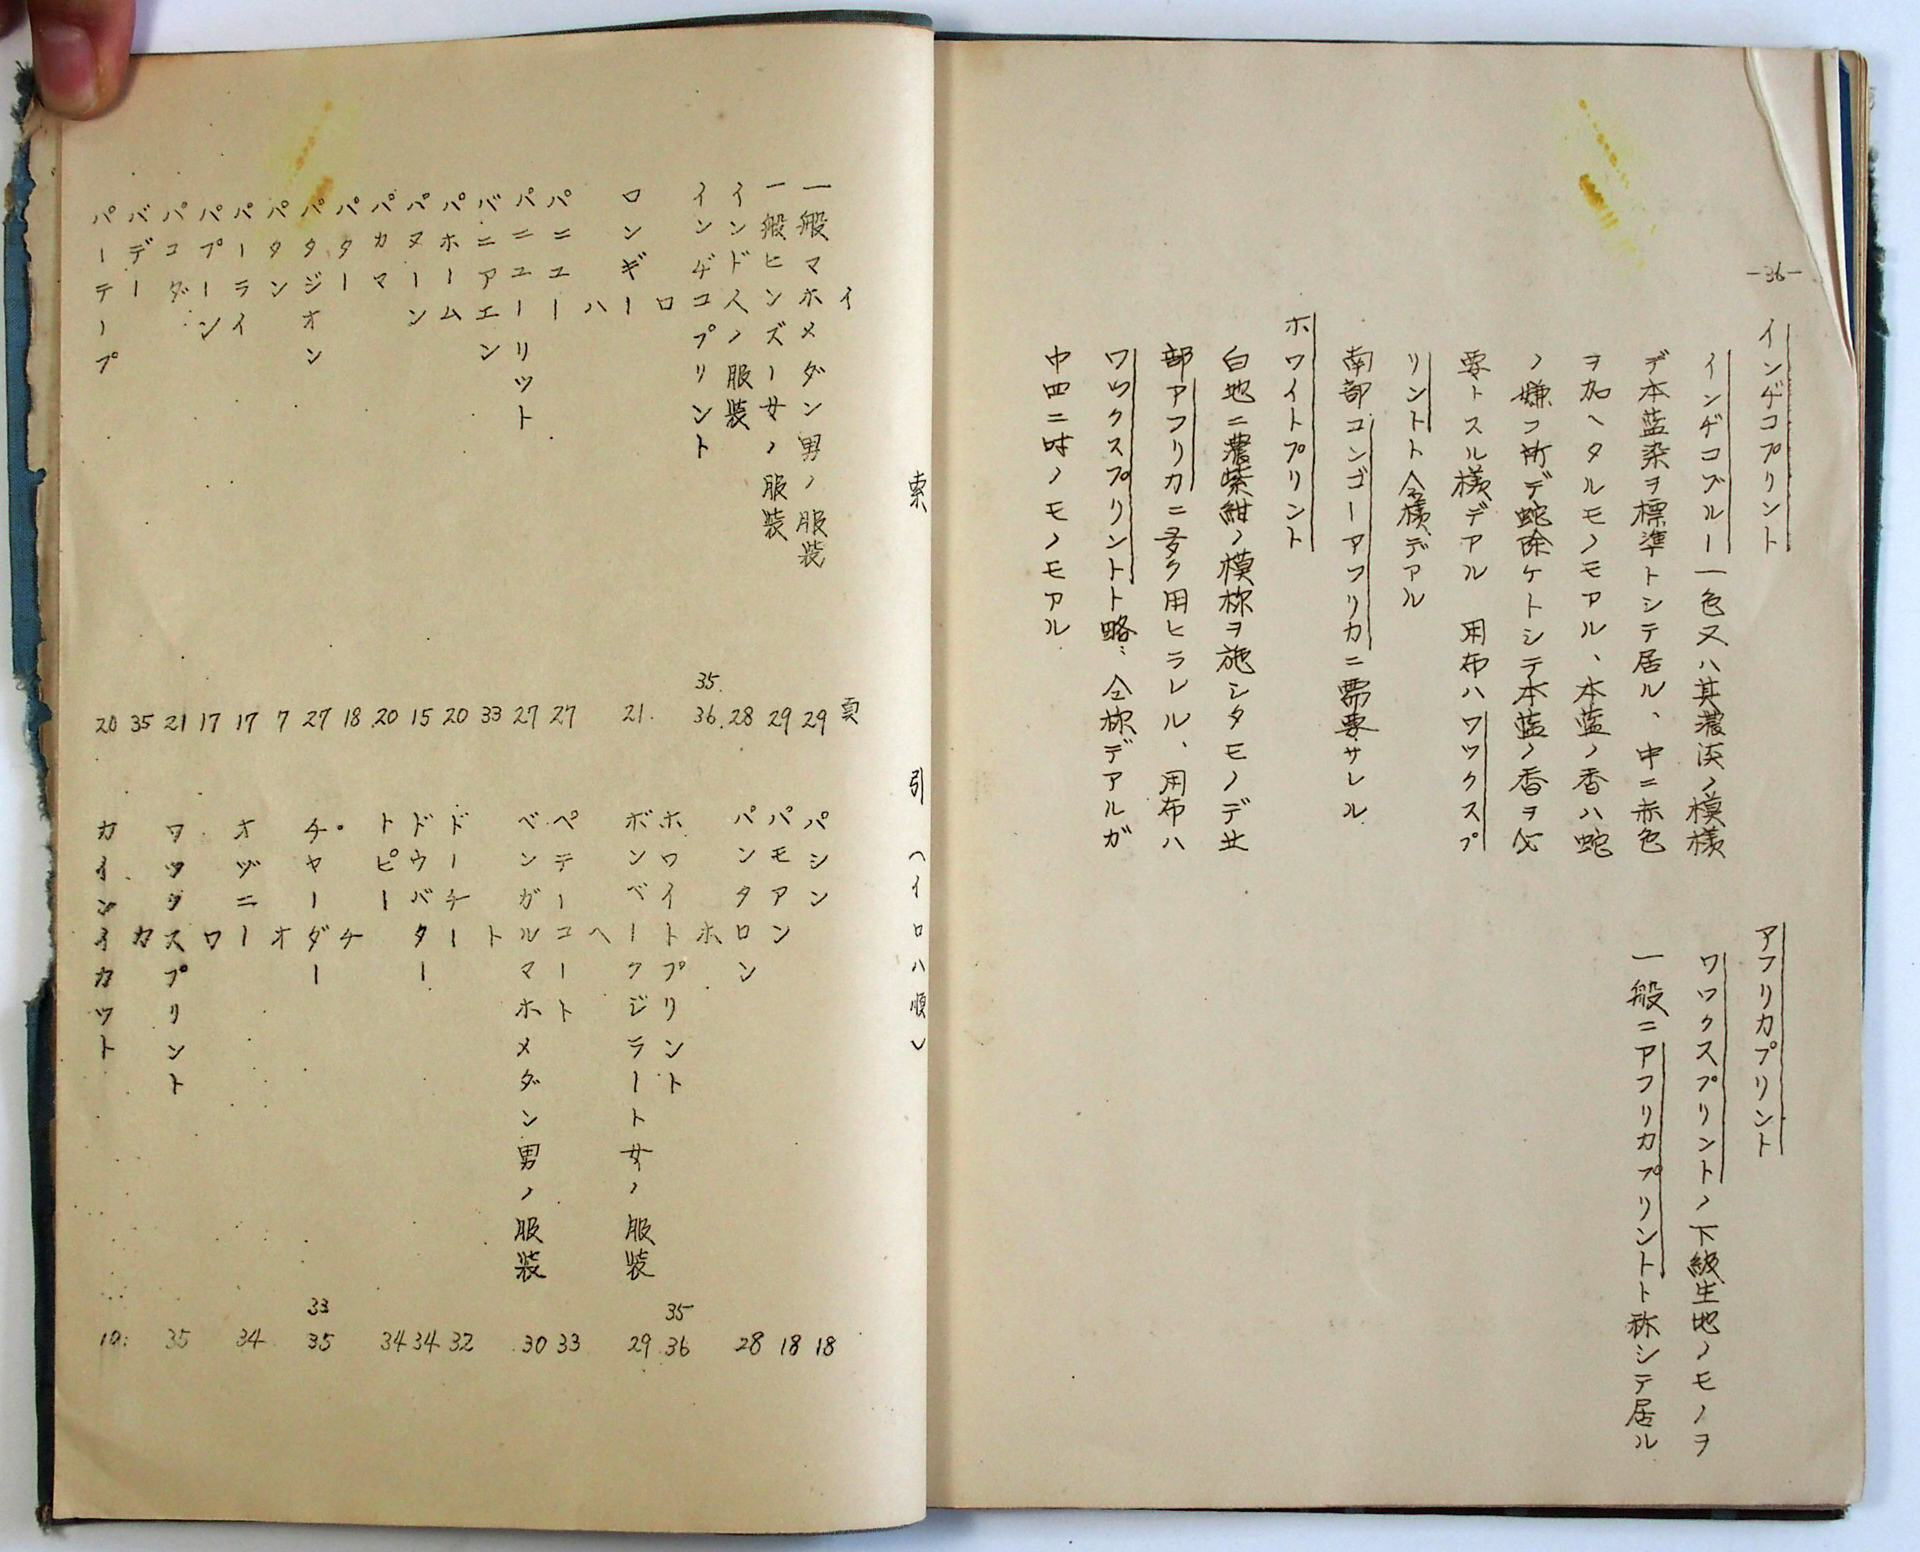 -36-
インヂゴプリント
インヂゴブルー一色又ハ其濃淡ノ模様
デ本藍染ヲ標準トシテ居ル、中ニ赤色
ヲ加ヘタルモノモアル、本藍ノ香ハ蛇
ノ嫌フ所デ蛇除ケトシテ本藍ノ香ヲ必
要トスル様デアル 用布ハワックスプ
リントト仝様デアル
南部コンゴーアフリカニ需要サレル
ホワイトプリント
白地ニ濃紫紺ノ模様ヲ施シタモノデ北
部アフリカニ多ク用ヒラレル、用布ハ
ワックスプリントト略〻仝様デアルガ
中四二吋ノモノモアル
アフリカプリント
ワックスプリントノ下級生地ノモノヲ
一般ニアフリカプリントト称シテ居ル
索 引 (イロハ順)
頁
イ
一般マホメダン男ノ服装 29
一般ヒンズー女ノ服装 29
インド人ノ服装 28
インヂゴプリント 35. 36.
ロ
ロンギー 21.
ハ
パニユー 27
パニユーリット 27
バニアエン 33
パホーム 20
パヌーン 15
パカマ 20
パター 18
パタジオン 27
パタン 7
パーライ 17
パプーン 17
パコダ 21
バデー 35
パーテープ 20
パシン 18
パモアン 18
パンタロン 28
ホ
ホワイトプリント 35 36
ボンベークジラート女ノ服装 29
ヘ
ペテーコート 33
ベンガルマホメダン男ノ服装 30
ト
ドーチー 32
ドウバター 34
トピー 34
チ
チャーダー 33 35
オ
オヅニー 34
ワ
ワックスプリント 35
カ
カインイカット 19